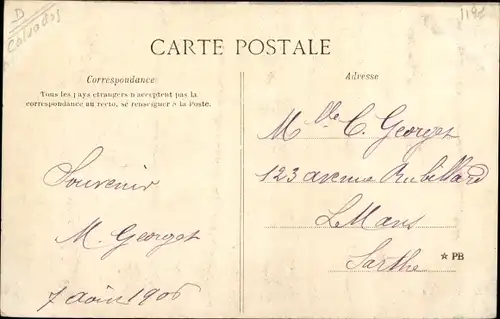 D
Calvados
CARTE POSTALE
Correspondance
Tous les pays étrangers n'acceptent pas la
correspondance au recto, se renseigner à la Poste.
Souvenir
M. Georget
7 août 1906
Adresse
Mlle C. Georget
123 avenue Rubillard
Le Mans
Sarthe
☆ PB